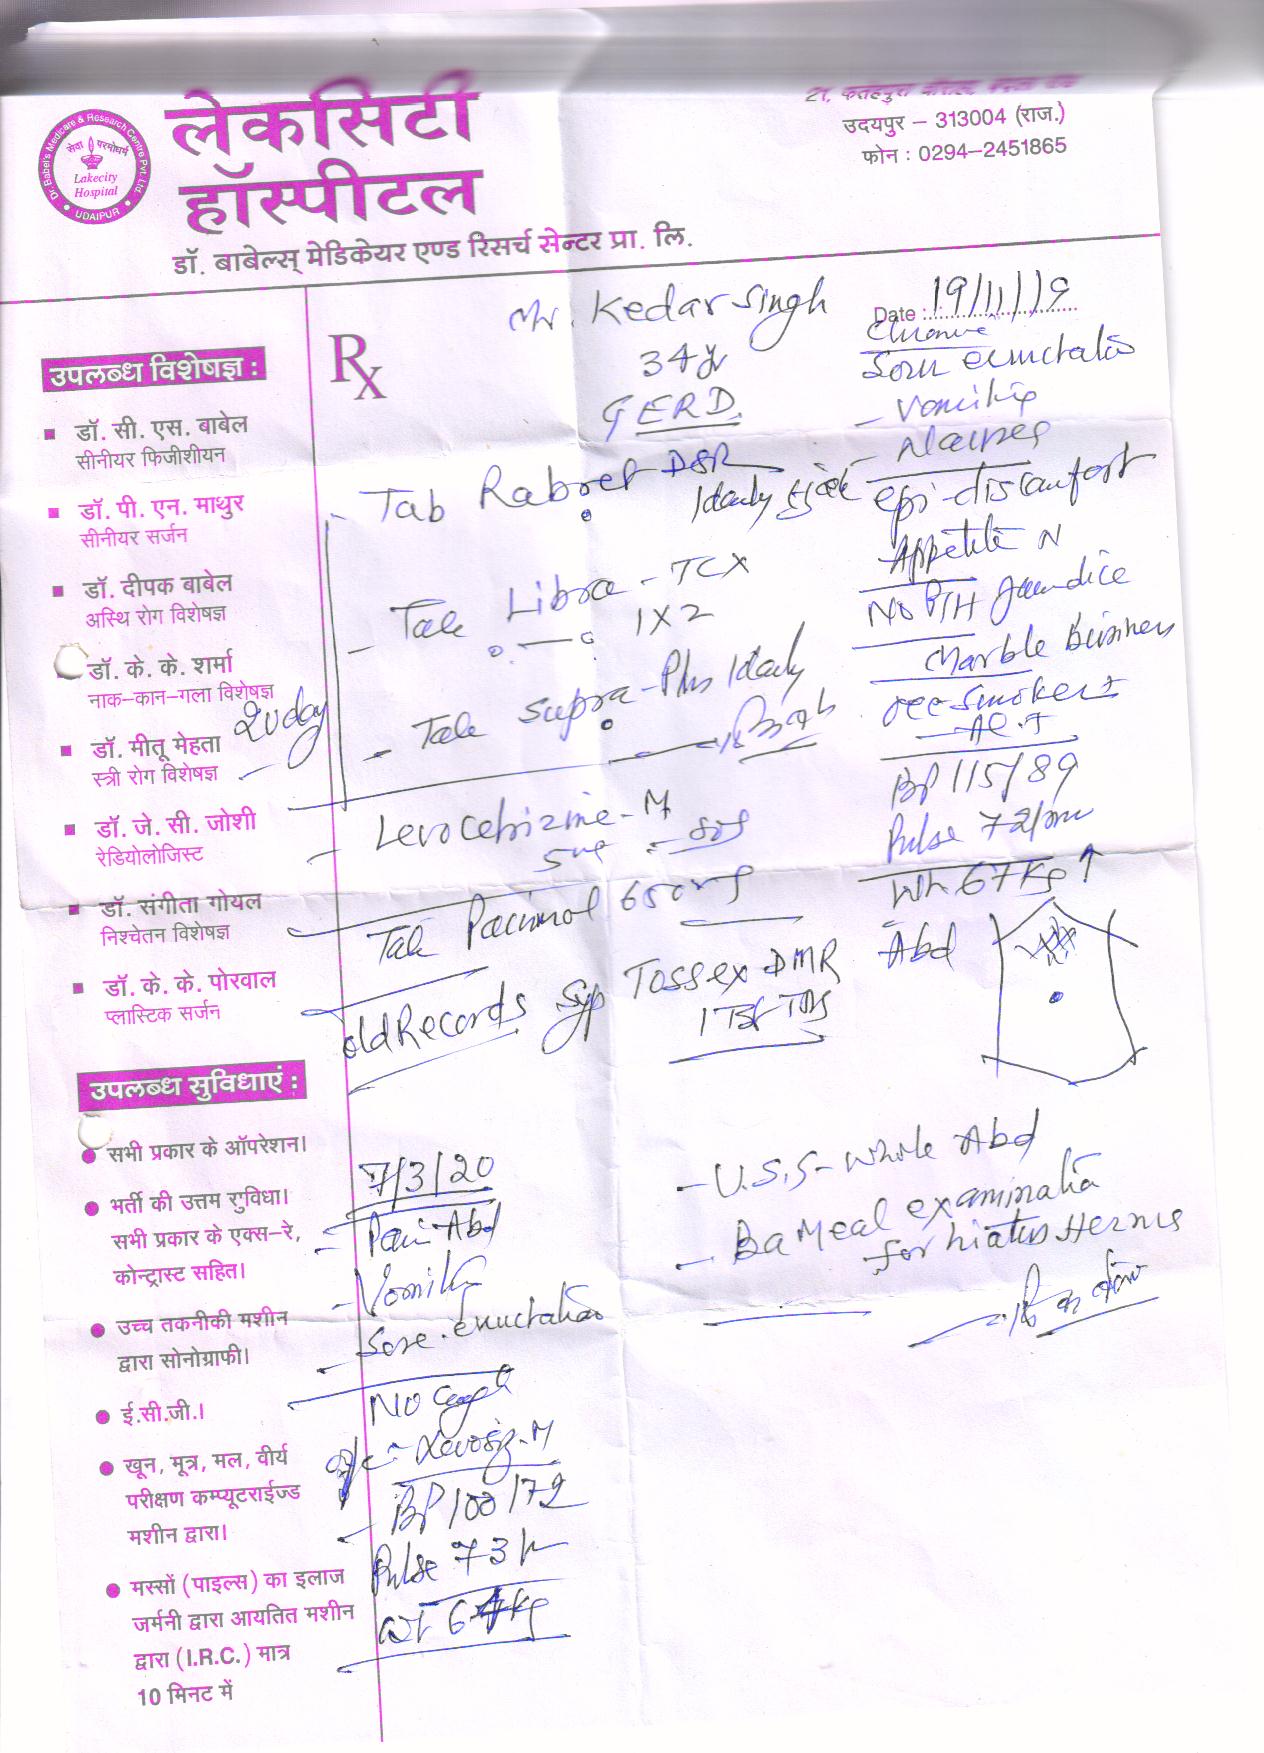 Dr. Babel's Medicare & Research Centre Pvt. Ltd.
सेवा परमोधर्म
Lakecity
Hospital
UDAIPUR
लेकसिटी
हॉस्पीटल
डॉ. बाबेल्स् मेडिकेयर एण्ड रिसर्च सेन्टर प्रा. लि.
उदयपुर – 313004 (राज.)
फोन : 0294–2451865
Mr. Kedar Singh
Date : 19/11/19
34 yr
GERD
Rx
Chronic
Sour eructatio
- Vomiting
- Nausea
epi-discomfort
Appetite N
No P/H Jaundice
Marble Business
occ smoker
BP 115/89
Pulse 72/mi
Wt 67 Kg ↑
Abd
- Tab Rabret DSR
1 daily
- Tab Libra - TCX
1 X 2
- Tab Supra-Plus 1 daily
20 day
- Levocetrizine-M
5 mg - SOS
Tab Pacimol 650 mg
old Records Syp TOSSEX DMR
1 TSF TDS
- U.S.G - Whole Abd
- Ba Meal examination
for hiatus Hernia
7/3/20
- Pain Abd
- Vomiting
- Sore eructation
No Cough
Levosiz-M
- BP 100/72
Pulse 73/m
WT 64 kg
उपलब्ध विशेषज्ञ :
डॉ. सी. एस. बाबेल
सीनीयर फिजीशीयन
डॉ. पी. एन. माथुर
सीनीयर सर्जन
डॉ. दीपक बाबेल
अस्थि रोग विशेषज्ञ
डॉ. के. के. शर्मा
नाक–कान–गला विशेषज्ञ
डॉ. मीतू मेहता
स्त्री रोग विशेषज्ञ
डॉ. जे. सी. जोशी
रेडियोलोजिस्ट
डॉ. संगीता गोयल
निश्चेतन विशेषज्ञ
डॉ. के. के. पोरवाल
प्लास्टिक सर्जन
उपलब्ध सुविधाएं :
सभी प्रकार के ऑपरेशन।
भर्ती की उत्तम सुविधा।
सभी प्रकार के एक्स–रे,
कोन्ट्रास्ट सहित।
उच्च तकनीकी मशीन
द्वारा सोनोग्राफी।
ई.सी.जी.।
खून, मूत्र, मल, वीर्य
परीक्षण कम्प्यूटराईज्ड
मशीन द्वारा।
मस्सों (पाइल्स) का इलाज
जर्मनी द्वारा आयतित मशीन
द्वारा (I.R.C.) मात्र
10 मिनट में